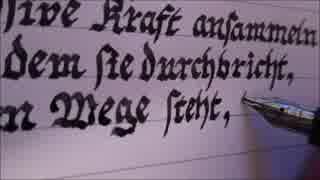 sive Kraft ansammeln
dem sie durchbricht,
n Wege steht,